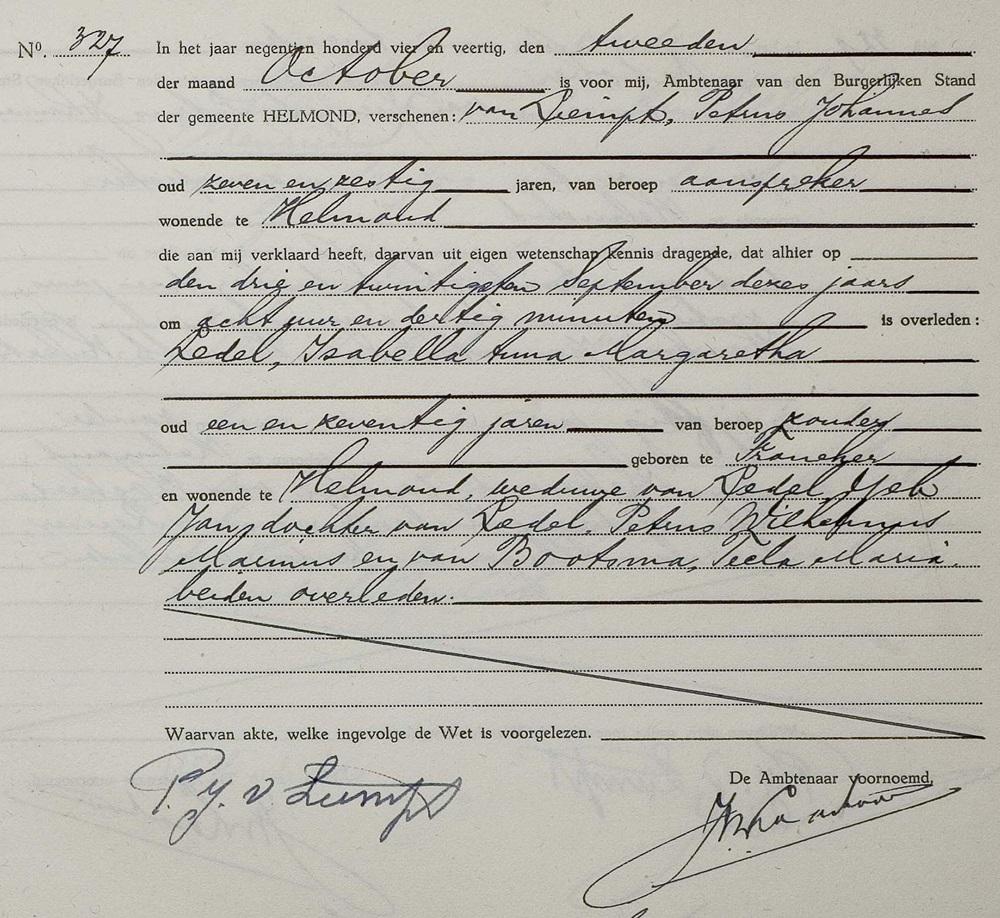 Nº. 327
In het jaar negentien honderd vier en veertig, den tweeden
der maand October is voor mij, Ambtenaar van den Burgerlijken Stand
der gemeente HELMOND, verschenen: van Lempt, Petrus Johannes
oud zeven en zestig jaren, van beroep aanspreker
wonende te Helmond
die aan mij verklaard heeft, daarvan uit eigen wetenschap kennis dragende, dat alhier op
den drie en twintigsten September dezes jaars
om acht uur en dertig minuten is overleden:
Ledel, Isabella Anna Margaretha
oud een en zeventig jaren van beroep zonder
geboren te Franeker
en wonende te Helmond, weduwe van Ledel,
Jan, dochter van Ledel, Petrus Wilhelmus
Marinus en van Bootsma, Tecla Maria,
beiden overleden.
Waarvan akte, welke ingevolge de Wet is voorgelezen.
De Ambtenaar voornoemd,
P. J. v Lempt